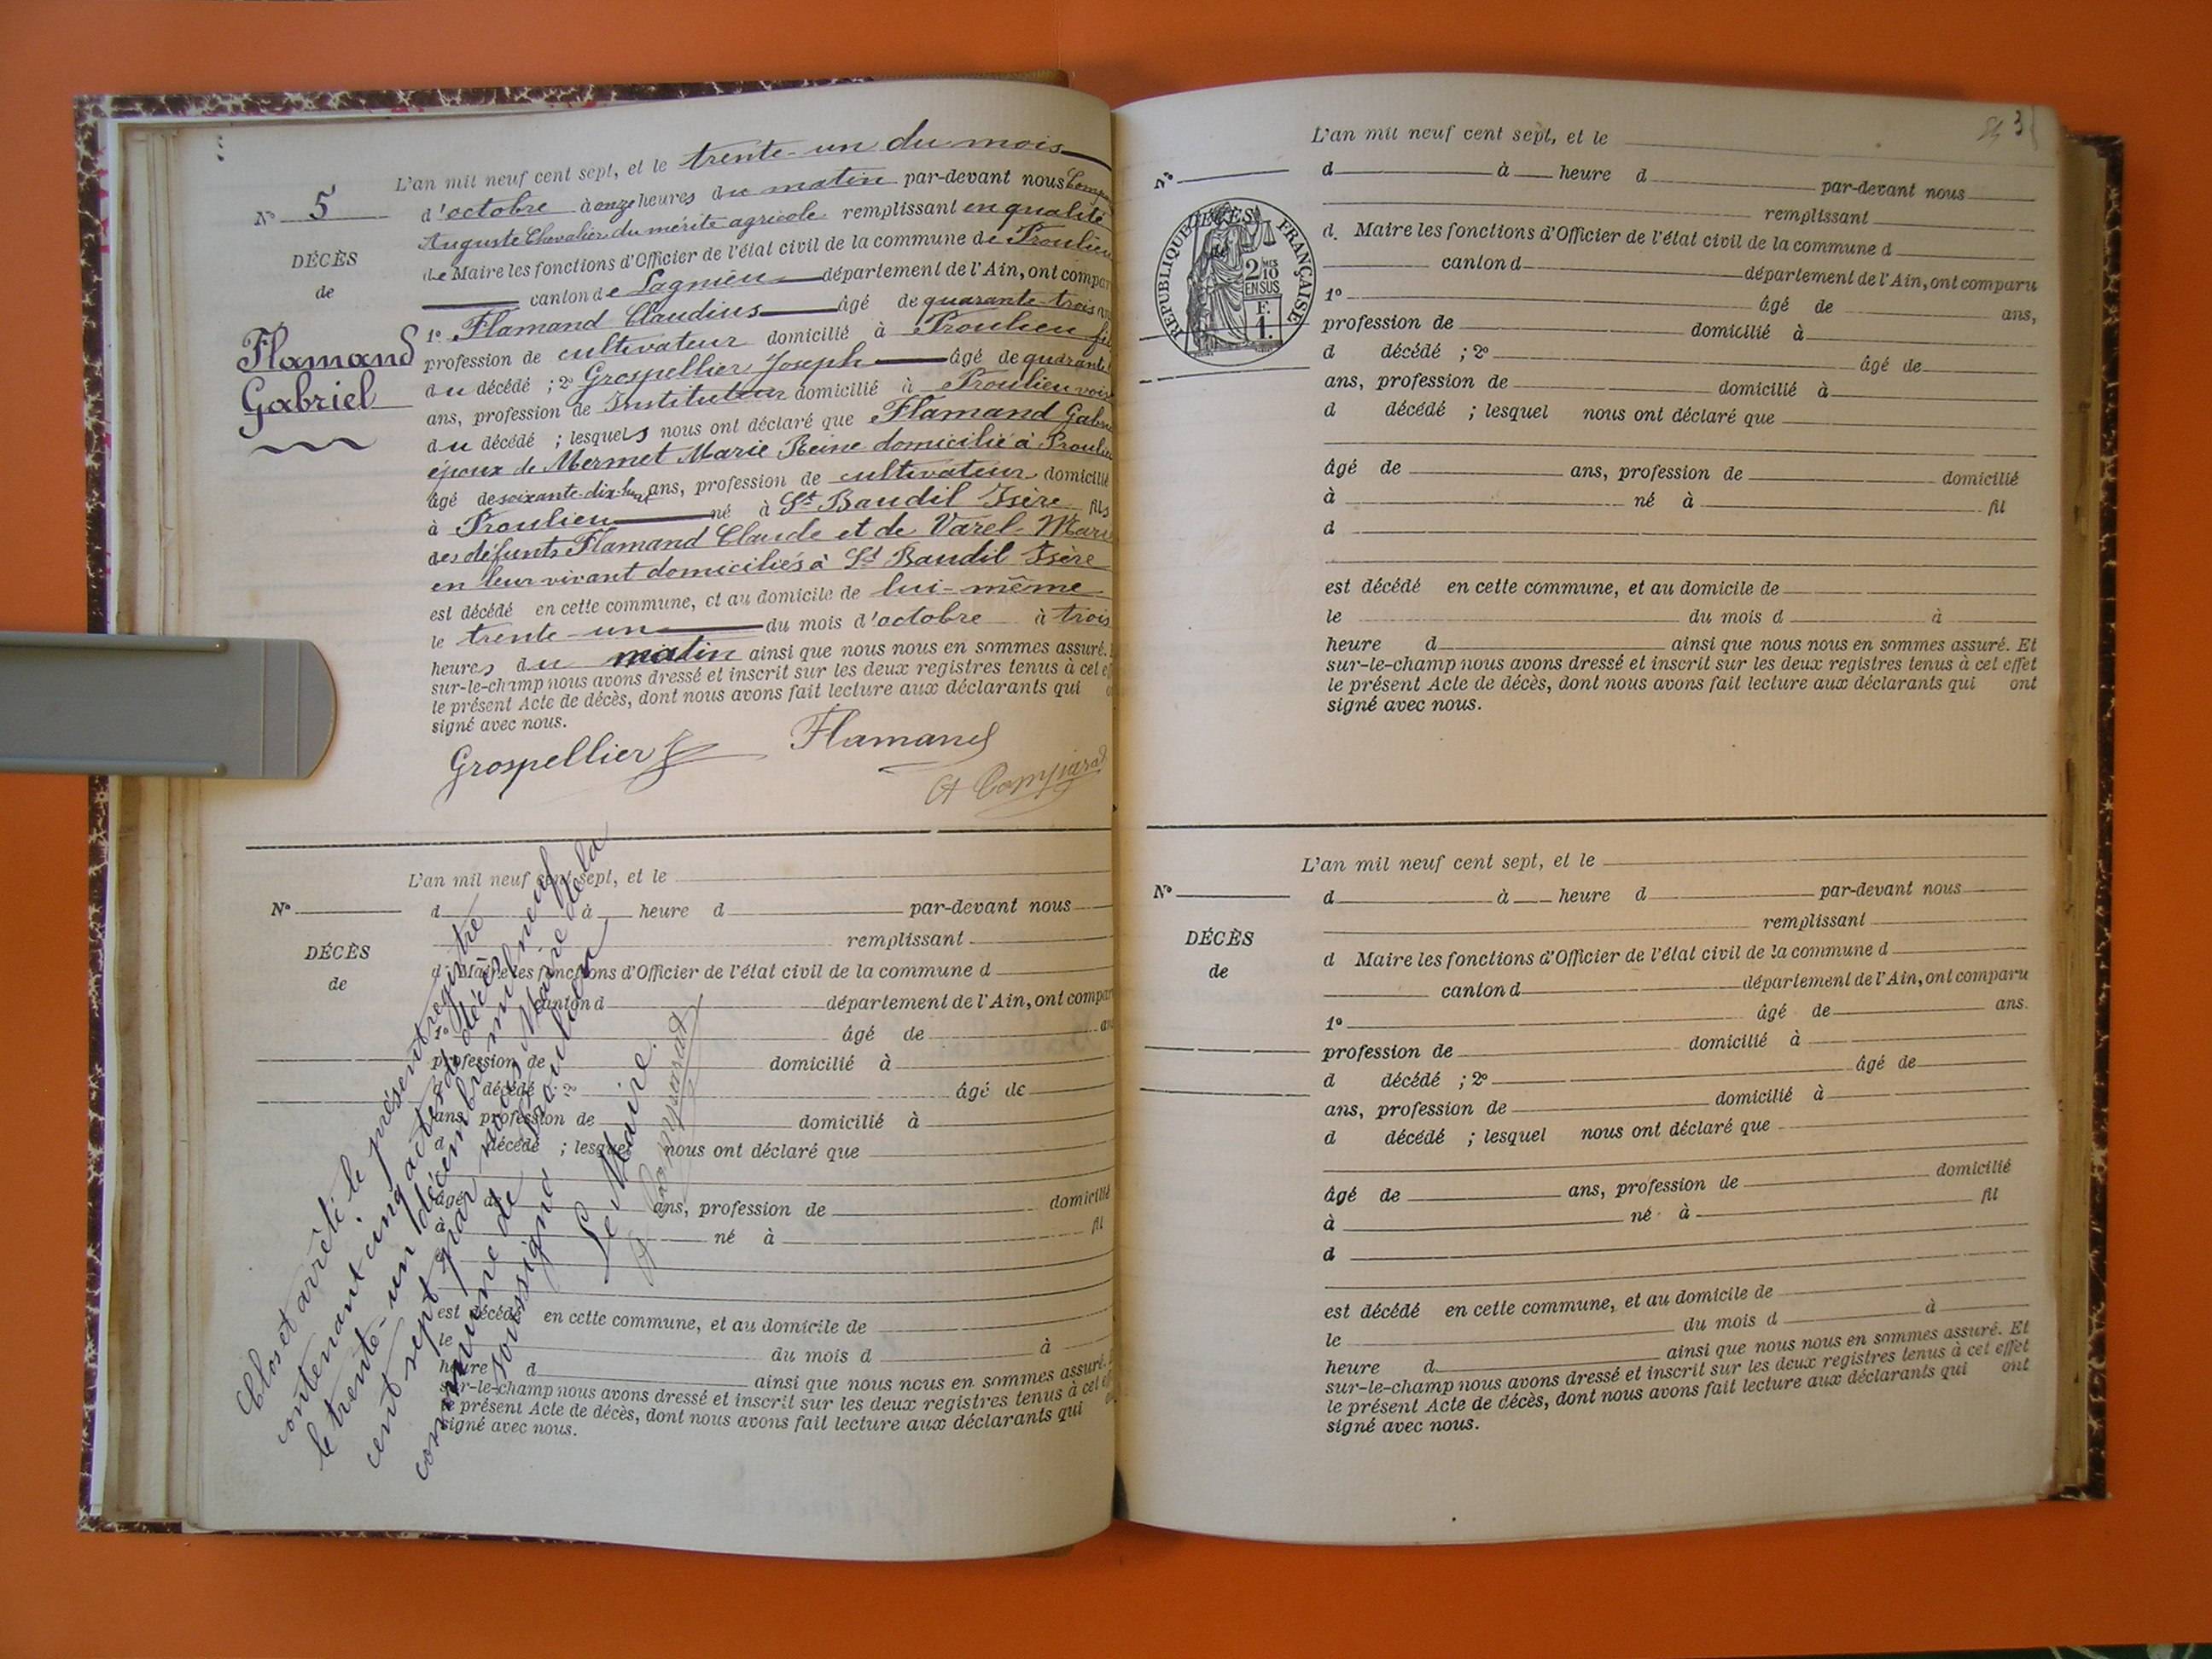 L'an mil neuf cent sept, et le trente-un du mois
N° 5
d'octobre à onze heures du matin par-devant nous
Auguste Chevalier du mérite agricole remplissant en qualité
DÉCÈS
de Maire les fonctions d'Officier de l'état civil de la commune de Proulieu
de
canton de Lagnieu département de l'Ain, ont compar
1° Flamand Claudius âgé de quarante-trois
Flamand
Gabriel
profession de cultivateur domicilié à Proulieu fils
du décédé ; 2° Grospellier Joseph âgé de quarante
ans, profession de Instituteur domicilié à Proulieu voisin
du décédé ; lesquels nous ont déclaré que Flamand Gabriel
époux de Mermet Marie Reine domicilié à Proulieu
âgé de soixante-dix-huit ans, profession de cultivateur domicilié
à Proulieu né à St Baudil Isère fils
des défunts Flamand Claude et de Varel Marie
en leur vivant domiciliés à St Baudil Isère
est décédé en cette commune, et au domicile de lui-même
le trente-un du mois d'octobre à trois
heures du matin ainsi que nous nous en sommes assuré.
sur-le-champ nous avons dressé et inscrit sur les deux registres tenus à cet ef
le présent Acte de décès, dont nous avons fait lecture aux déclarants qui
signé avec nous.
Grospellier J Flamand
A Comparat
L'an mil neuf cent sept, et le
N°
d à heure d par-devant nous
remplissant
DÉCÈS
d Maire les fonctions d'Officier de l'état civil de la commune d
de
canton d département de l'Ain, ont compar
1° âgé de an
profession de domicilié à
d décédé ; 2° âgé de
ans, profession de domicilié à
d décédé ; lesquel nous ont déclaré que
âgé de ans, profession de domicilié
à né à fil
d
est décédé en cette commune, et au domicile de
le du mois d à
heure d ainsi que nous nous en sommes assuré.
sur-le-champ nous avons dressé et inscrit sur les deux registres tenus à cet ef
le présent Acte de décès, dont nous avons fait lecture aux déclarants qui
signé avec nous.
Clos et arrêté le présent registre
contenant cinq actes de décès
le trente-un décembre mil neuf
cent sept par nous Maire de la
commune de Proulieu
soussigné
Le Maire.
A Comparat
L'an mil neuf cent sept, et le
N°
d à heure d par-devant nous
remplissant
DÉCÈS
de
RÉPUBLIQUE FRANÇAISE
2 MES
10
EN SUS
F.
1.
d Maire les fonctions d'Officier de l'état civil de la commune d
canton d département de l'Ain, ont comparu
1° âgé de ans,
profession de domicilié à
d décédé ; 2° âgé de
ans, profession de domicilié à
d décédé ; lesquel nous ont déclaré que
âgé de ans, profession de domicilié
à né à fil
d
est décédé en cette commune, et au domicile de
le du mois d à
heure d ainsi que nous nous en sommes assuré. Et
sur-le-champ nous avons dressé et inscrit sur les deux registres tenus à cet effet
le présent Acte de décès, dont nous avons fait lecture aux déclarants qui ont
signé avec nous.
L'an mil neuf cent sept, et le
N°
d à heure d par-devant nous
remplissant
DÉCÈS
d Maire les fonctions d'Officier de l'état civil de la commune d
de
canton d département de l'Ain, ont comparu
1° âgé de ans.
profession de domicilié à
d décédé ; 2° âgé de
ans, profession de domicilié à
d décédé ; lesquel nous ont déclaré que
âgé de ans, profession de domicilié
à né à fil
d
est décédé en cette commune, et au domicile de
le du mois d à
heure d ainsi que nous nous en sommes assuré. Et
sur-le-champ nous avons dressé et inscrit sur les deux registres tenus à cet effet
le présent Acte de décès, dont nous avons fait lecture aux déclarants qui ont
signé avec nous.